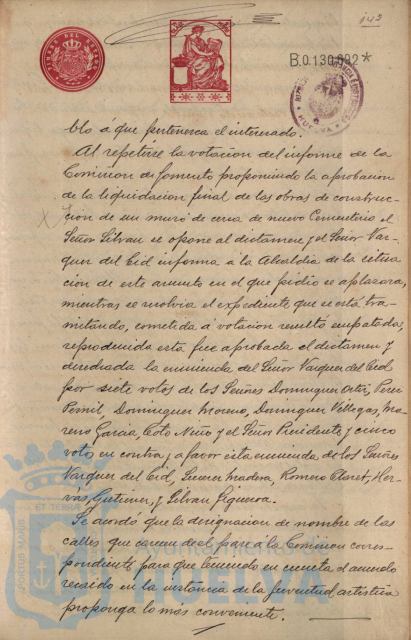 142
B.0.130.692*
HUELVA
blo á que pertenezca el interesado.
Al repetirse la votación del informe de la
Comision de fomento proponiendo la aprobación
de la liquidacion final de las obras de construc-
ción de un muro de cerca de nuevo Cementerio el
Señor Silvan se opone al dictamen y el Señor Vaz-
quez del Cid informa á la Alcaldia de la situa
cion de este asunto en el que pidio se aplazara,
mientras se resolvia el expediente que se está tra-
mitando, cometida á votación resultó empatada;
reproducida esta fue aprobada el dictamen y
desechada la enmienda del Señor Vazquez del Cid
por siete votos de los Señores Dominguez Ortiz, Perez
Pomil, Dominguez Moreno, Dominguez Villegas, Mo
reno Garcia, Coto Niño y el Señor Presidente y cinco
votos en contra y a favor esta enmienda de los Señores
Vazquez del Cid, Madera, Romero Claret, Her-
vas, Gutierrez, y Silvan Figueroa.
Se acordó que la designacion de nombre de las
calles que carecen de el pase á la Comision corres-
pondiente para que teniendo en cuenta el acuerdo
recaido en la instancia de la Juventud artistica
proponga lo más conveniente.
PORTUS MARIS
ET TERRAE
Ayuntamiento de
HUELVA